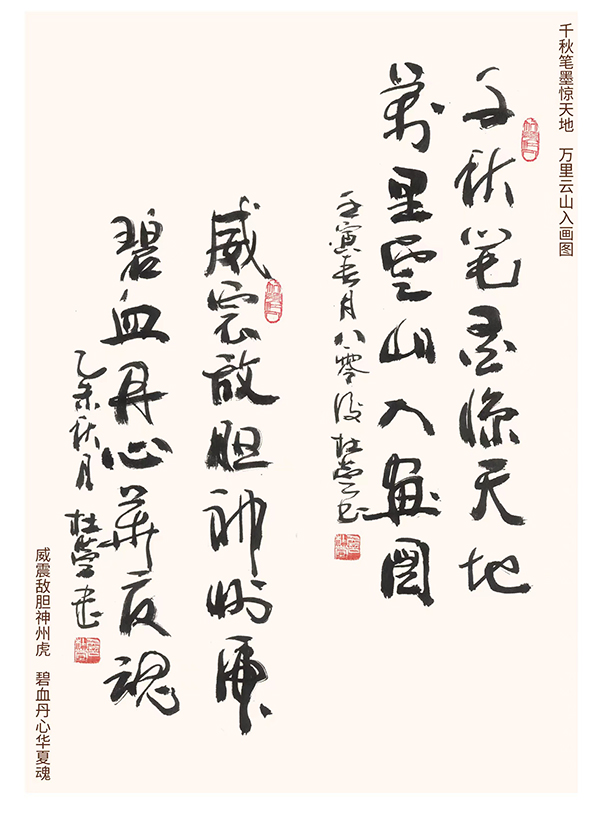 千秋笔墨惊天地 万里云山入画图
千秋笔墨惊天地
万里雲山入画图
壬寅春月八零后杜莹书
威震敌胆神州虎
碧血丹心華夏魂
乙未秋月杜莹书
威震敌胆神州虎 碧血丹心华夏魂